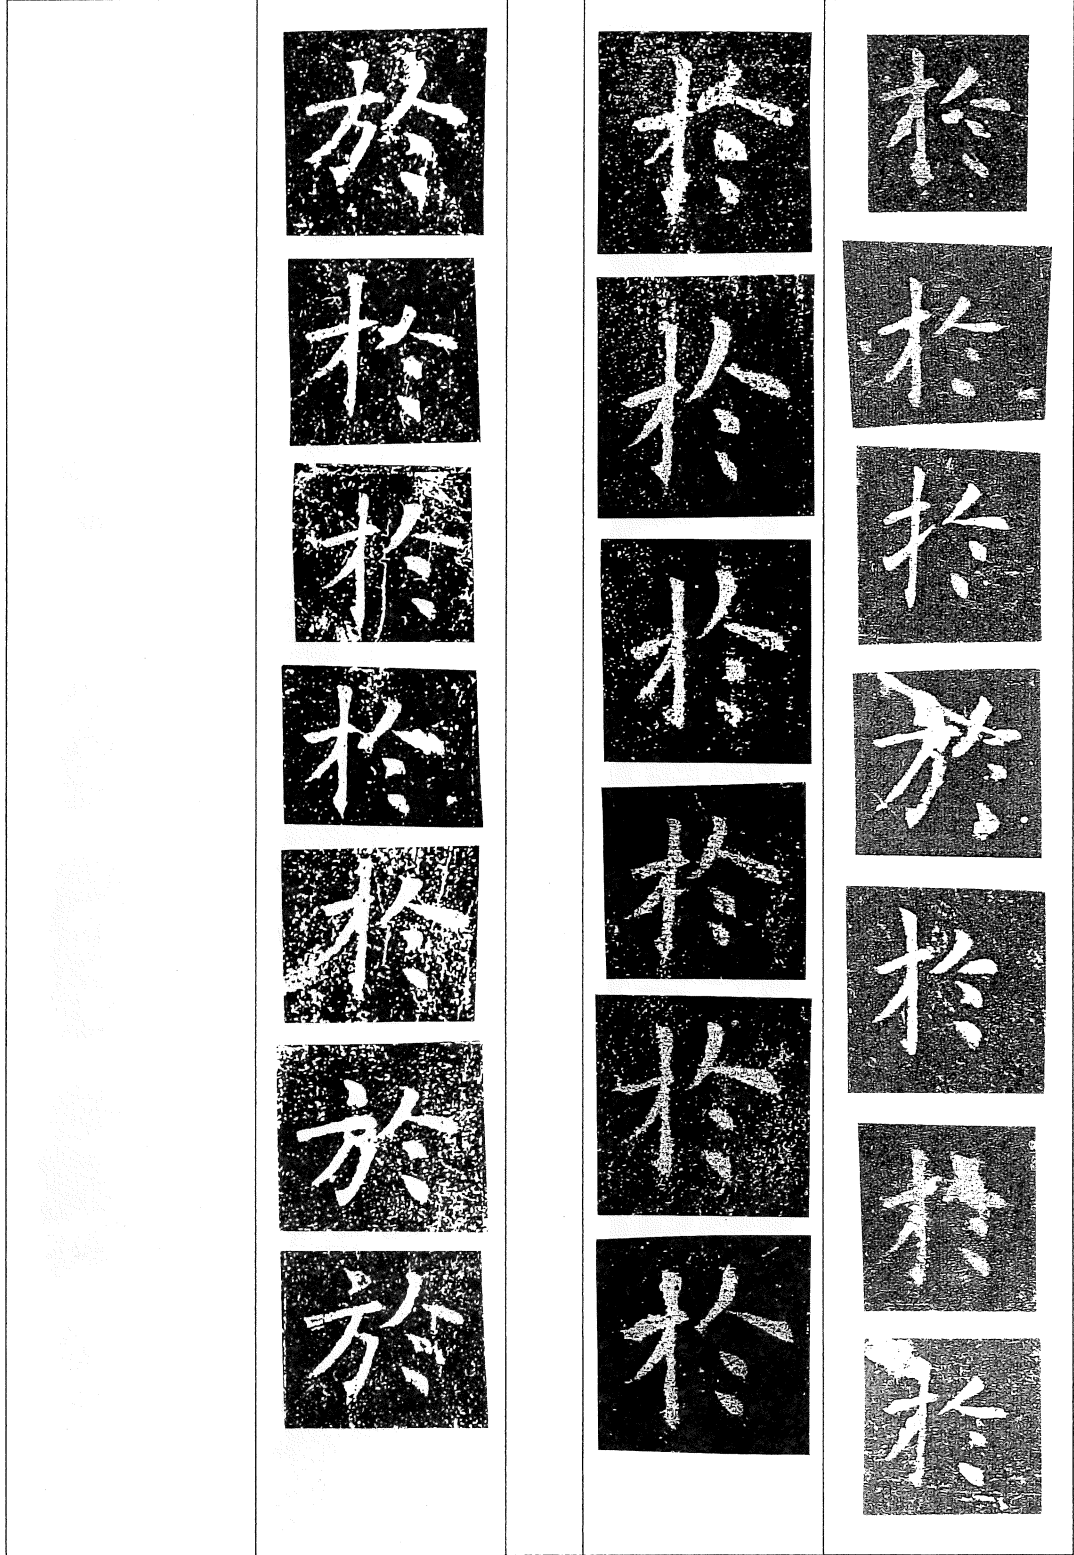 於於於於於於於
於於於於於於
於於於於於於於